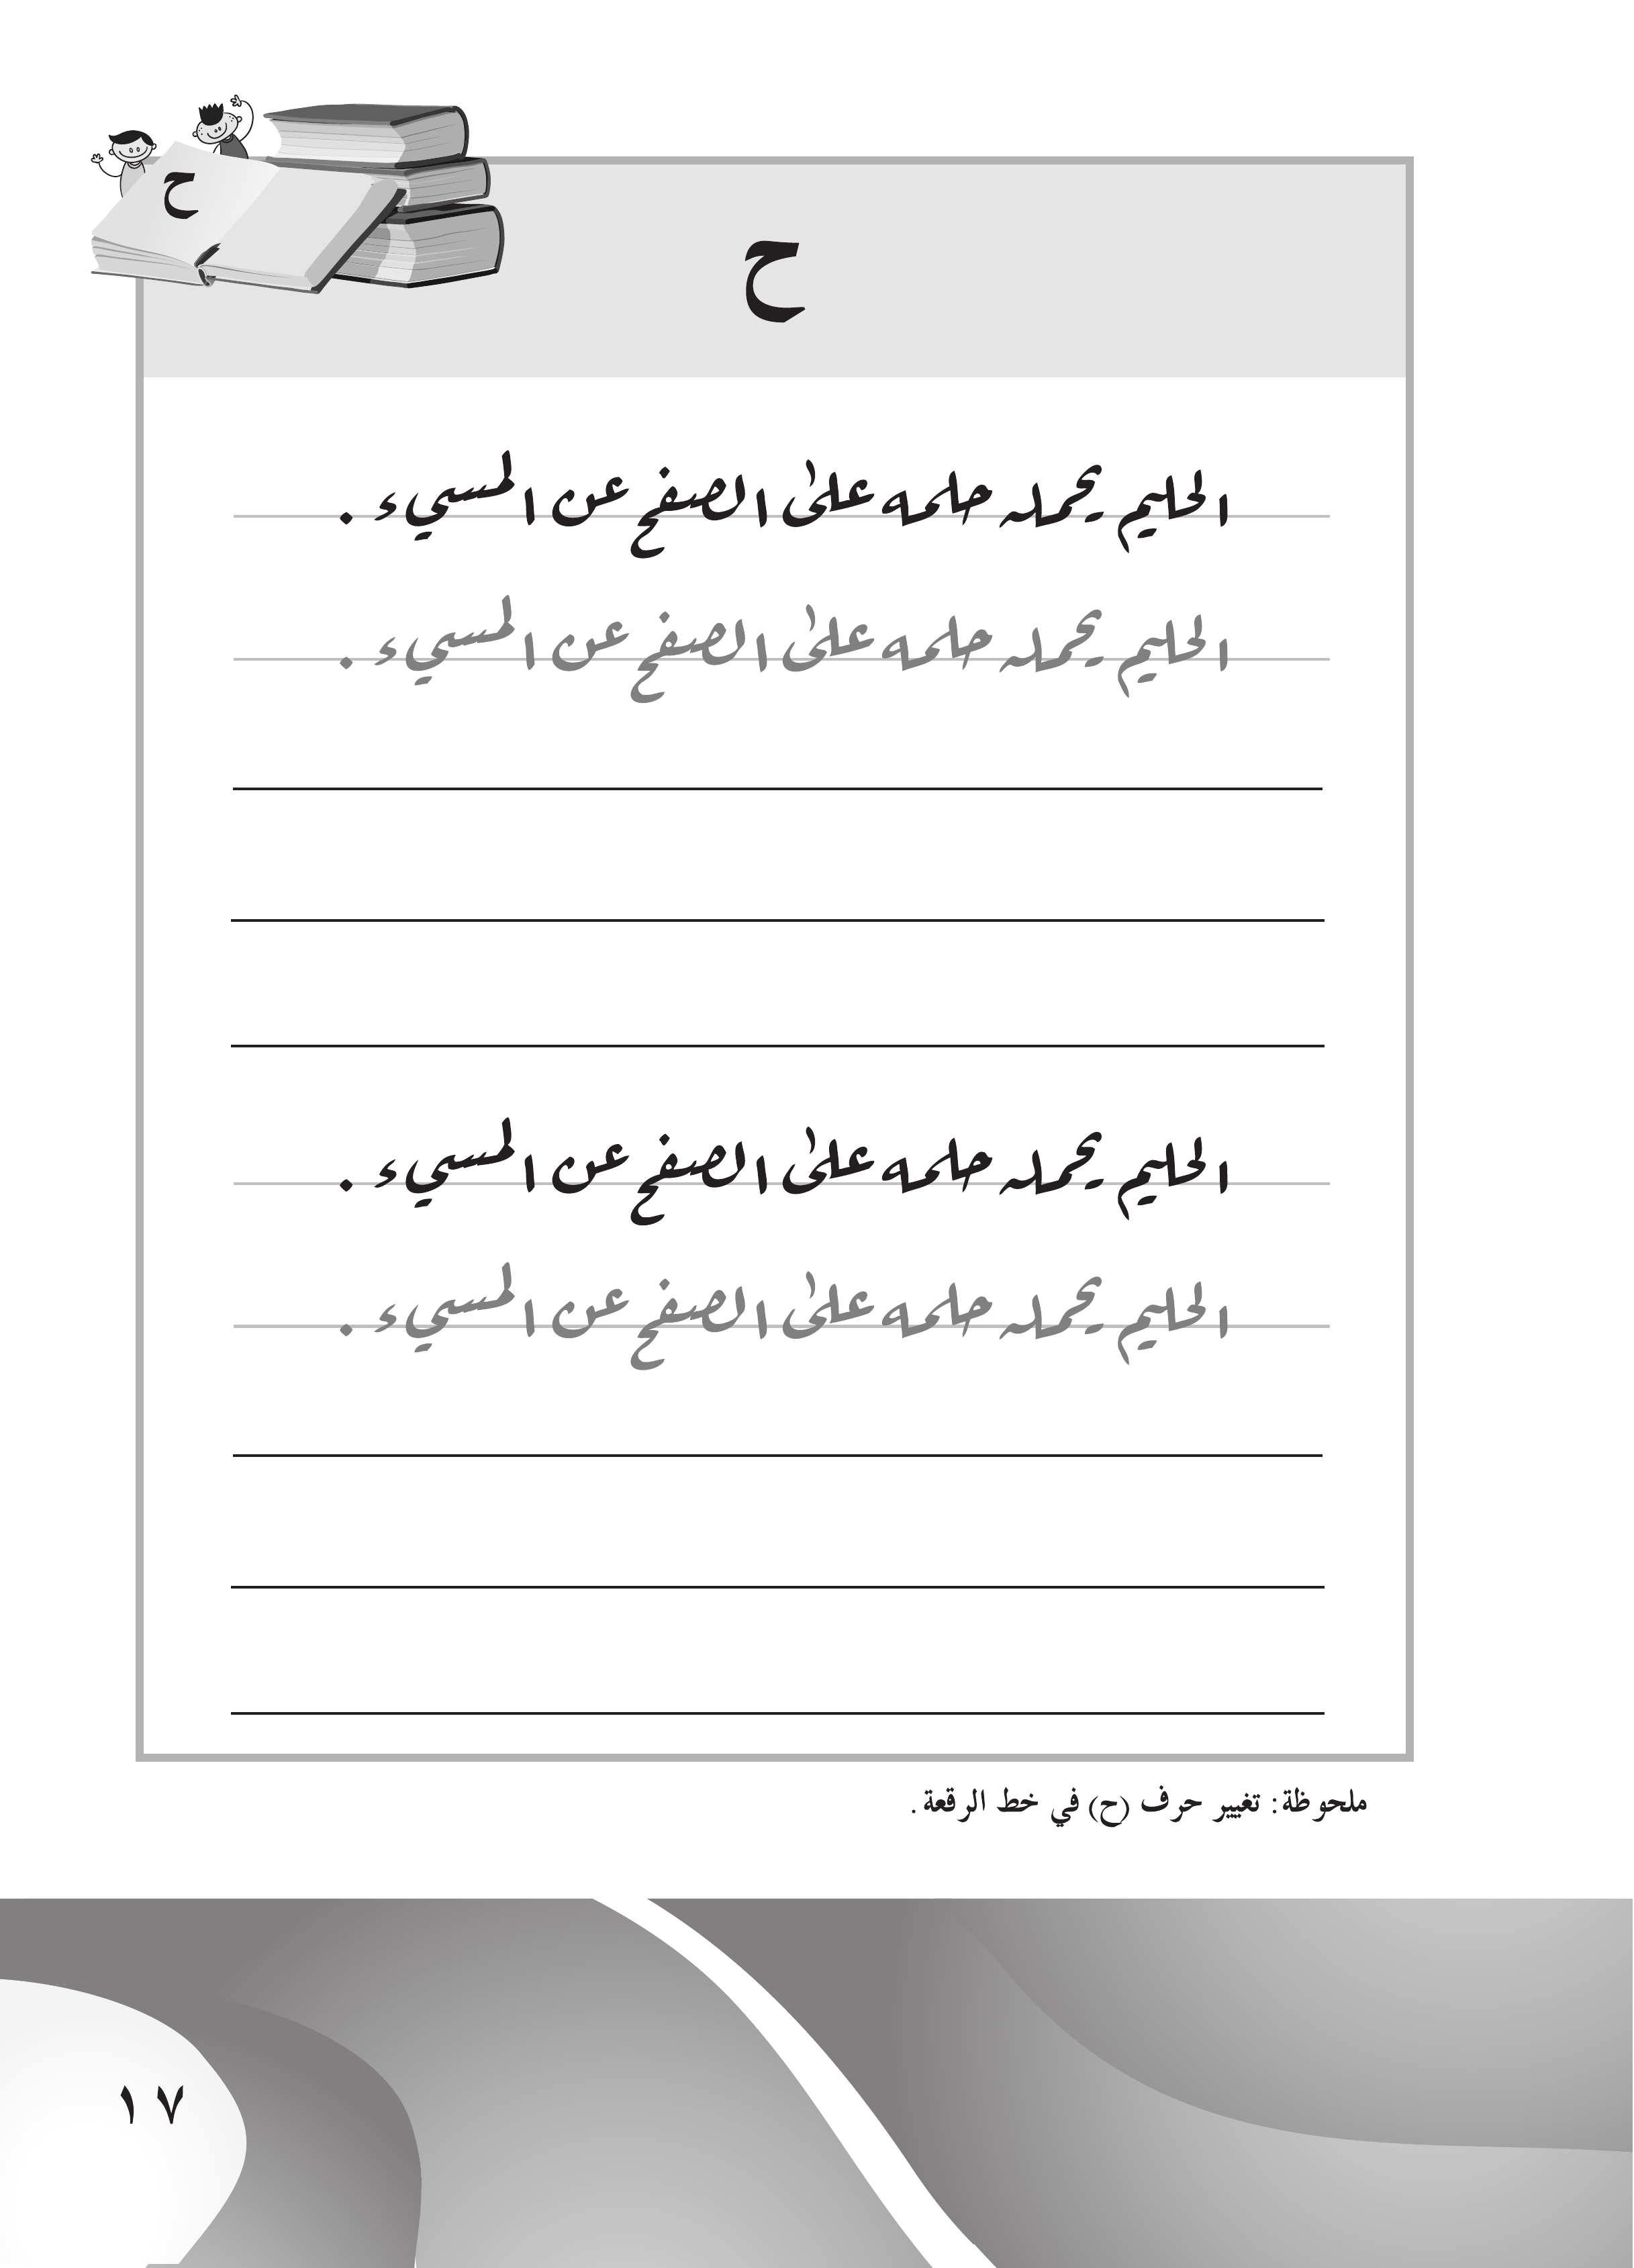 ح
ح
الحليم يحمله حلمه على الصفح عن المسيء .
الحليم يحمله حلمه على الصفح عن المسيء .
الحليم يحمله حلمه على الصفح عن المسيء .
الحليم يحمله حلمه على الصفح عن المسيء .
ملحوظة: تغيير حرف (ح) في خط الرقعة.
١٧